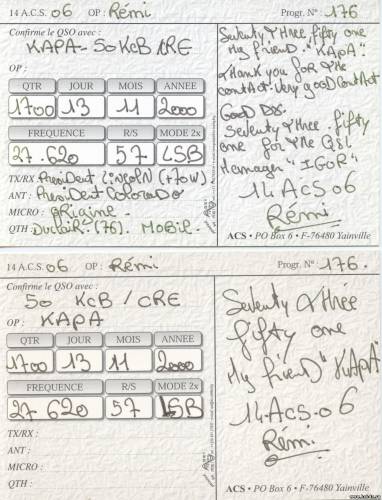 14 A.C.S. 06 OP : Rémi Progr. N° : 176
Confirme le QSO avec :
KAPA - 50 KCB / CRE
OP :
QTR JOUR MOIS ANNEE
1700 13 11 2000
FREQUENCE R/S MODE 2x
27.620 57 LSB
TX/RX : President Lincoln (170W).
ANT : President Colorado
MICRO : ORigine.
QTH : Duclair. (76). Mobil.
Seventy & three fifty one
My friend. "KAPA".
thank you for the
contact. Very good contact
Good DX.
Seventy & three. fifty
one for the QSL
Manager "IGOR"
14 ACS 06
Rémi
ACS • PO Box 6 • F-76480 Yainville
14 A.C.S. 06 OP : Rémi Progr. N° : 176.
Confirme le QSO avec :
50 KCB / CRE
OP : KAPA
QTR JOUR MOIS ANNEE
1700 13 11 2000
FREQUENCE R/S MODE 2x
27 620 57 LSB
TX/RX :
ANT :
MICRO :
QTH :
Seventy & three
fifty one
My friend "KAPA"
14.ACS.06
Rémi
ACS • PO Box 6 • F-76480 Yainville